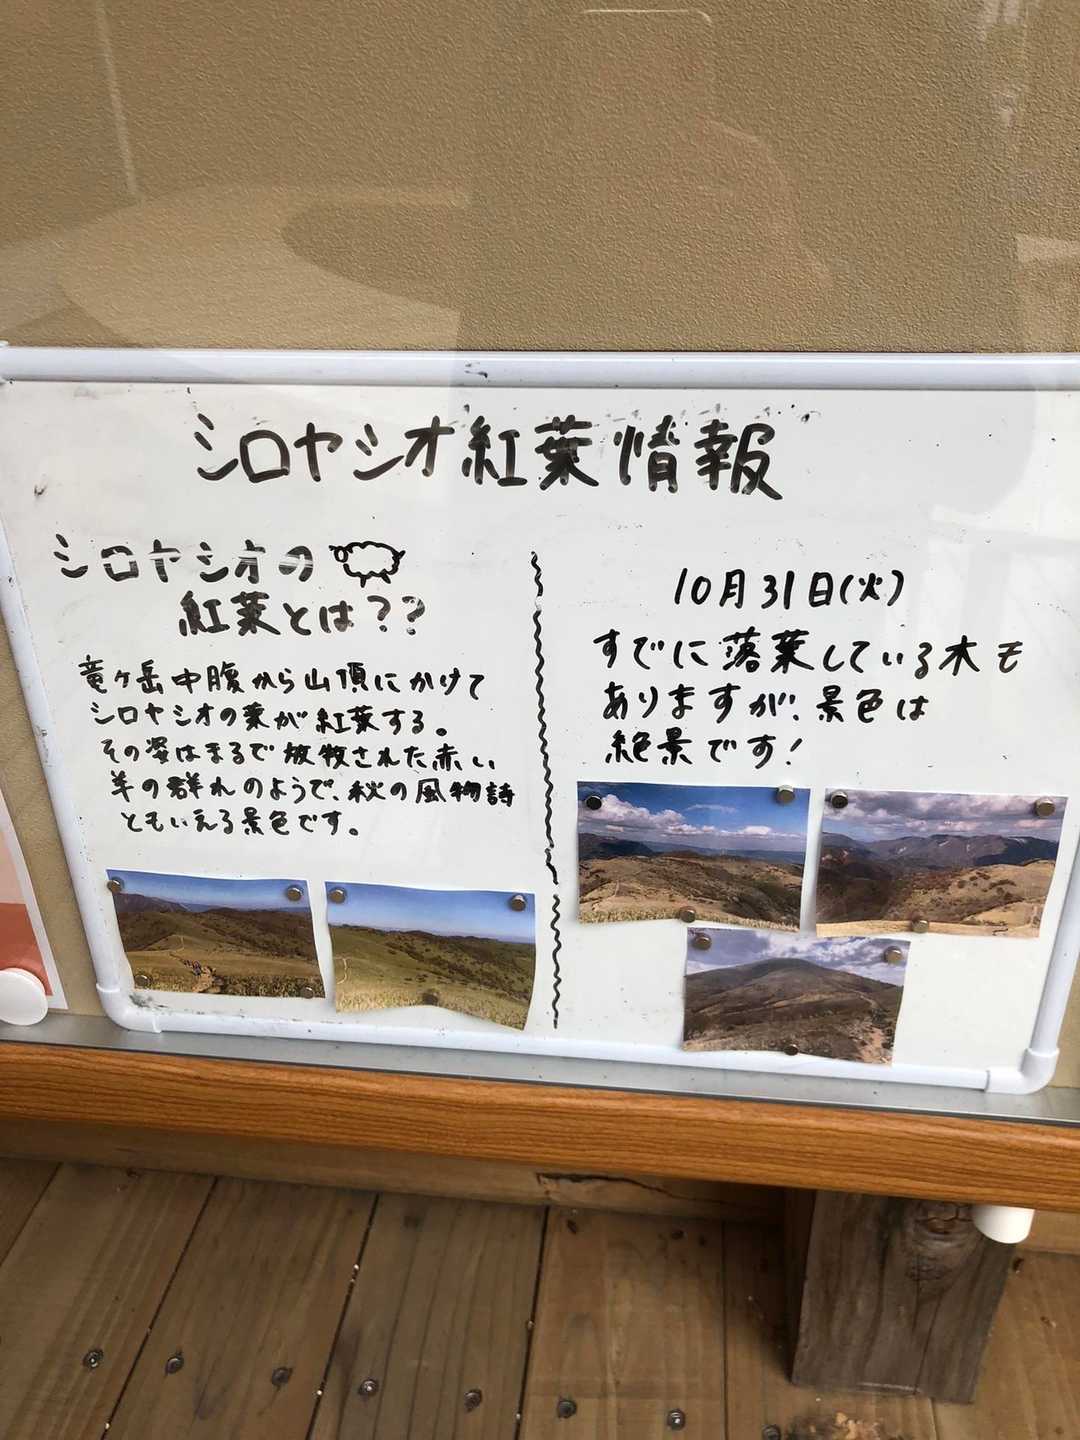 シロヤシオ紅葉情報
シロヤシオの
紅葉とは??
竜ヶ岳中腹から山頂にかけて
シロヤシオの葉が紅葉する。
その姿はまるで放牧された赤い
羊の群れのようで、秋の風物詩
ともいえる景色です。
10月31日(火)
すでに落葉している木も
ありますが、景色は
絶景です!